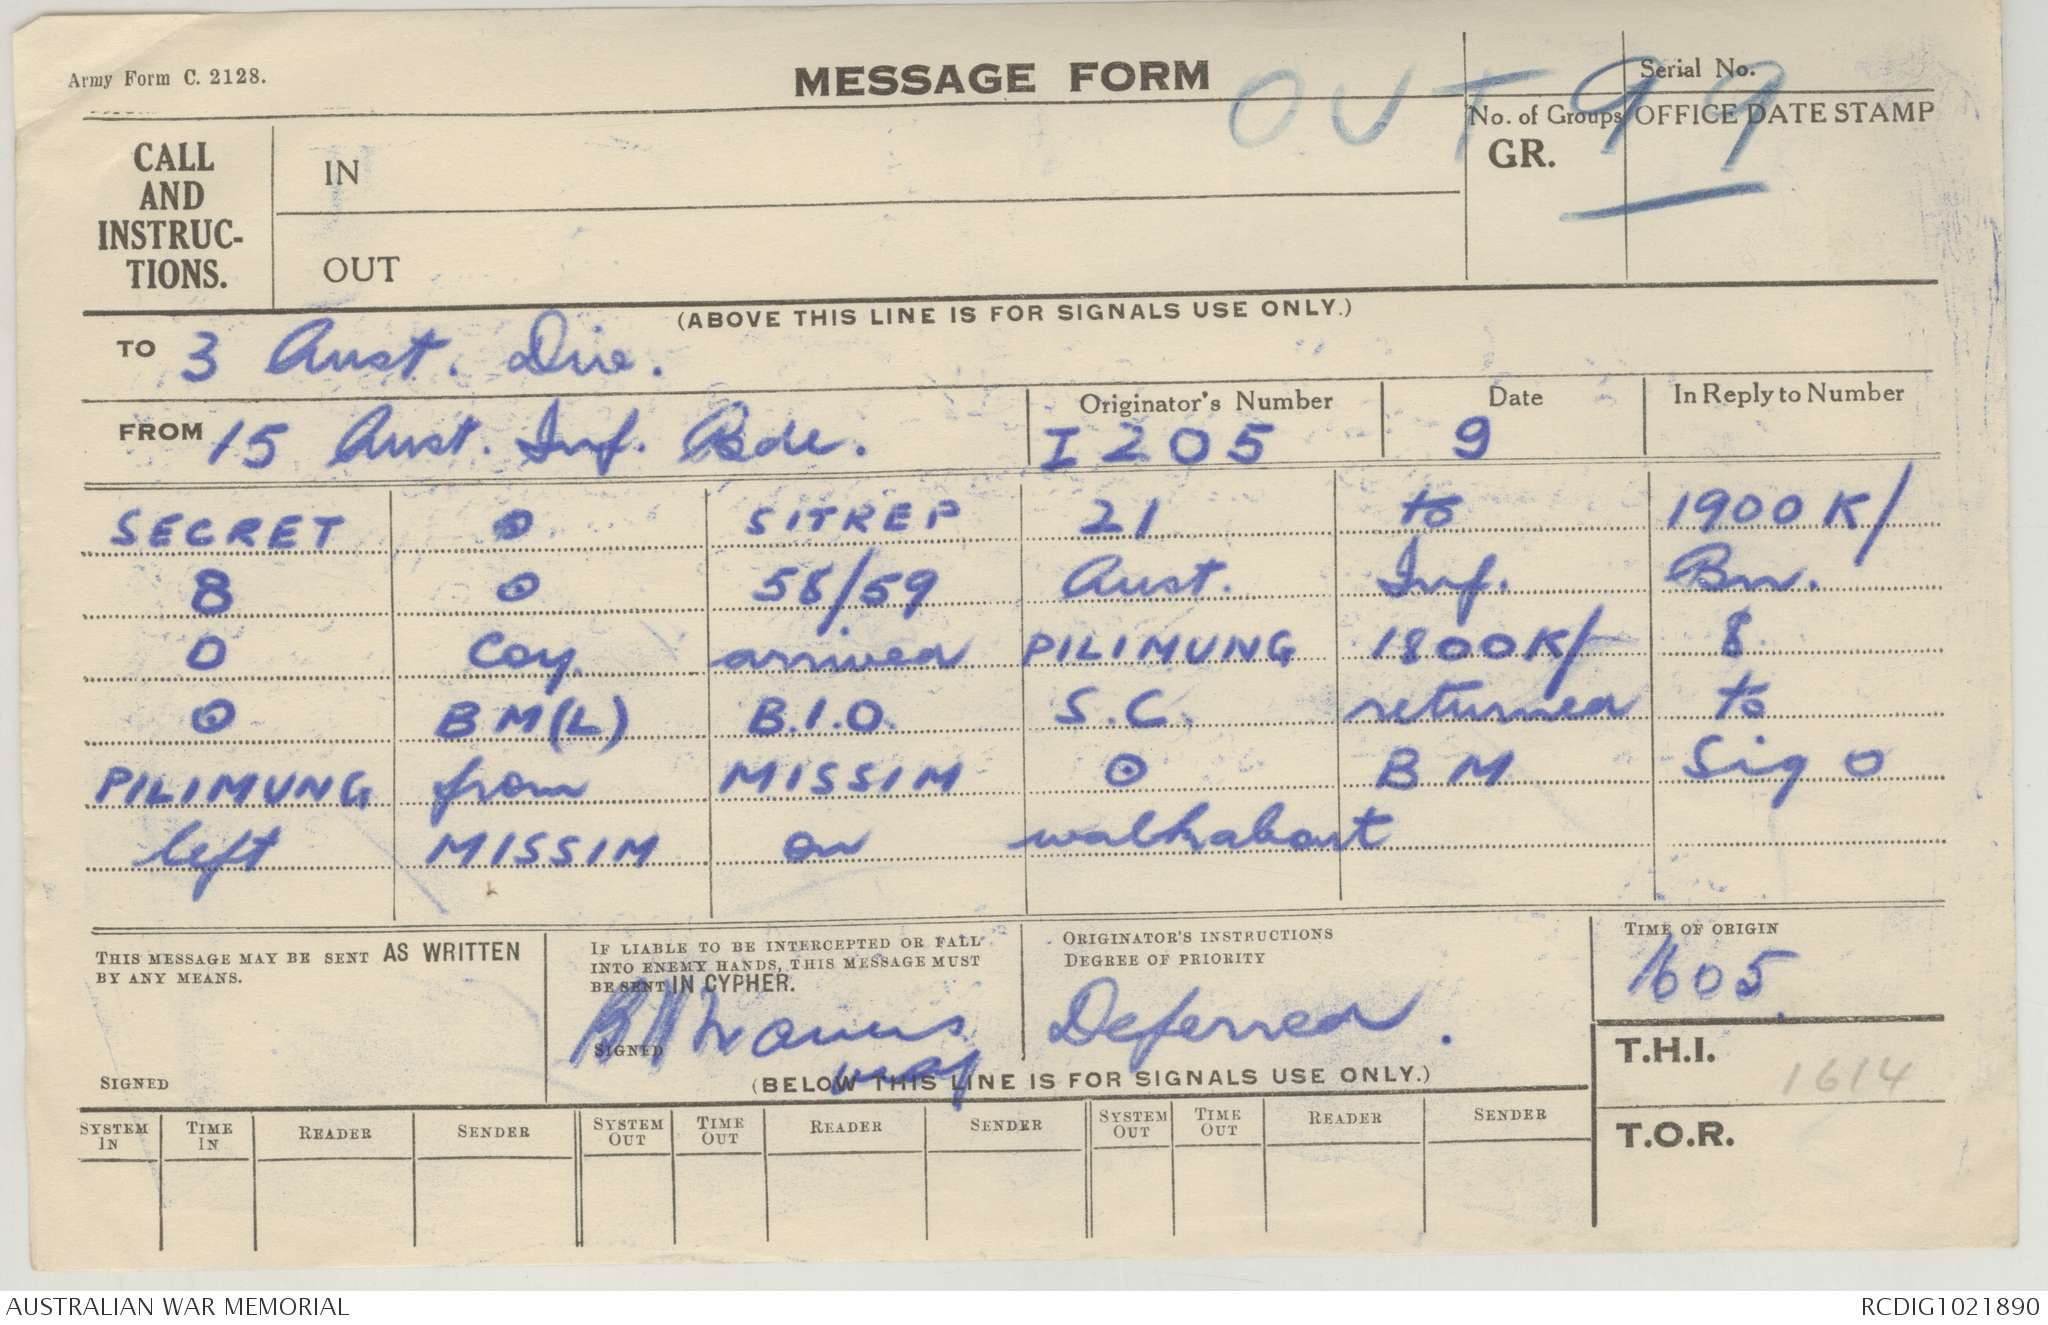 Army Form C. 2128.
MESSAGE FORM
OUT 99
Serial No.
No. of Groups
GR.
OFFICE DATE STAMP
CALL
AND
INSTRUC-
TIONS.
IN
OUT
(ABOVE THIS LINE IS FOR SIGNALS USE ONLY.)
TO 3 Aust. Div.
FROM 15 Aust. Inf. Bde.
Originator's Number
I 205
Date
9
In Reply to Number
SECRET ⊙ SITREP 21 to 1900K/
8 ⊙ 58/59 Aust. Inf. Bn.
O Coy. arrived PILIMUNG 1800K/ 8
⊙ BM(L) B.I.O. S.C. returned to
PILIMUNG from MISSIM ⊙ BM Sig O
left MISSIM on walkabout
THIS MESSAGE MAY BE SENT AS WRITTEN
BY ANY MEANS.
SIGNED
IF LIABLE TO BE INTERCEPTED OR FALL
INTO ENEMY HANDS, THIS MESSAGE MUST
BE SENT IN CYPHER.
SIGNED
ORIGINATOR'S INSTRUCTIONS
DEGREE OF PRIORITY
Deferred.
TIME OF ORIGIN
1605.
T.H.I. 1614
T.O.R.
(BELOW THIS LINE IS FOR SIGNALS USE ONLY.)
SYSTEM IN TIME IN READER SENDER SYSTEM OUT TIME OUT READER SENDER SYSTEM OUT TIME OUT READER SENDER
AUSTRALIAN WAR MEMORIAL
RCDIG1021890